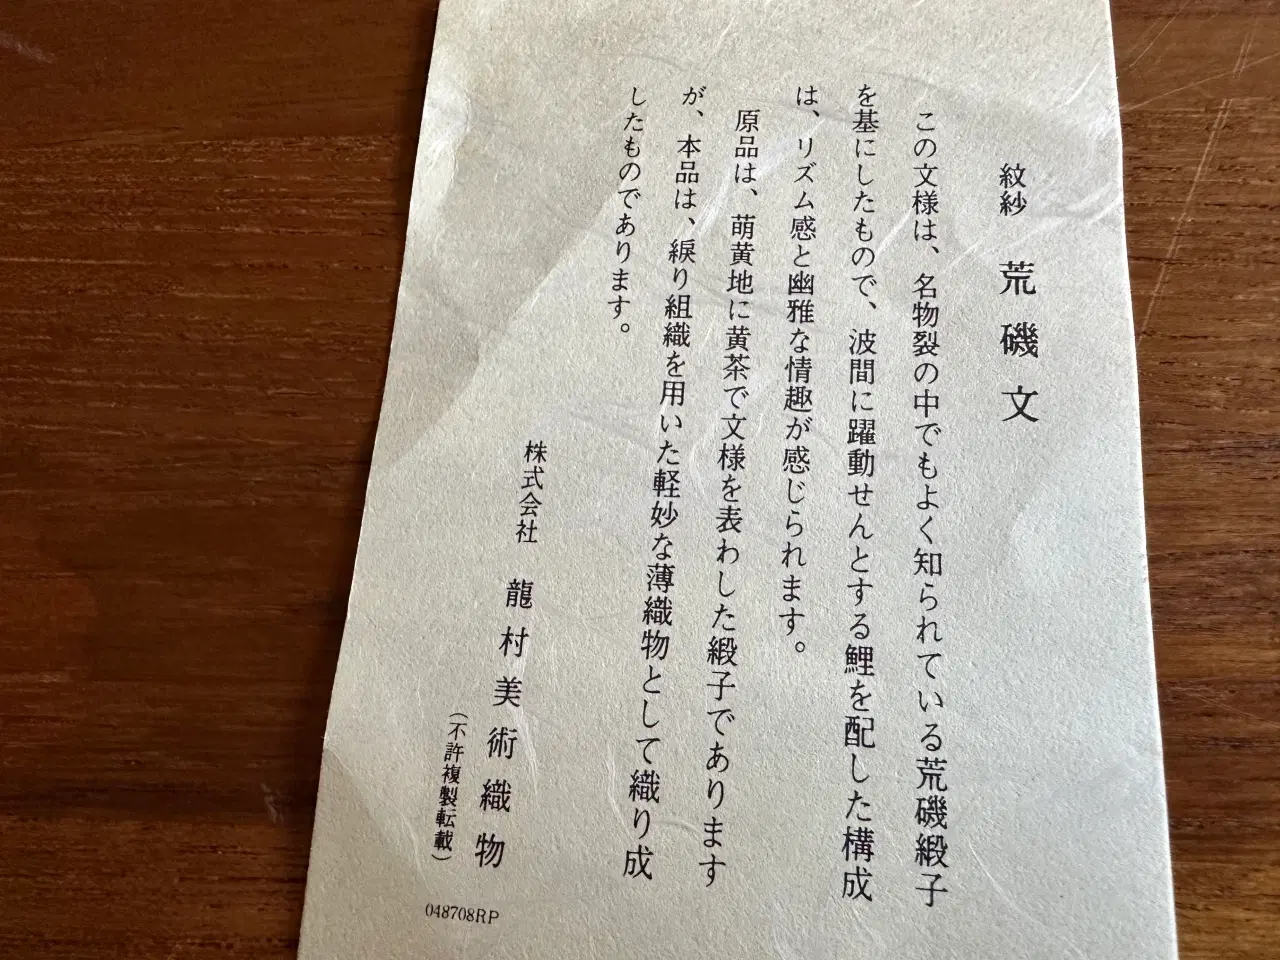 紋紗　荒磯文
この文様は、名物裂の中でもよく知られている荒磯緞子
を基にしたもので、波間に躍動せんとする鯉を配した構成
は、リズム感と幽雅な情趣が感じられます。
原品は、萌黄地に黄茶で文様を表わした緞子であります
が、本品は、綟り組織を用いた軽妙な薄織物として織り成
したものであります。
株式会社　龍村美術織物
（不許複製転載）
048708RP